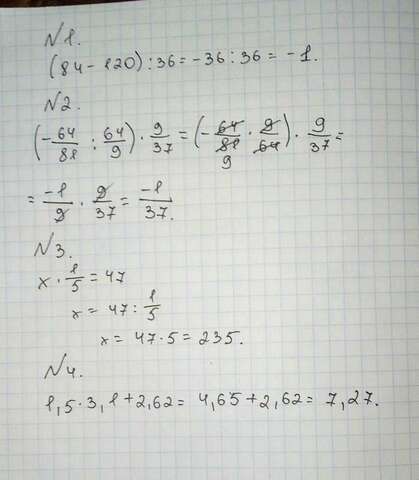 №1.
(84-120):36=-36:36=-1.
№2
(-64/81 : 64/9) · 9/37 = (-64/81 9 · 9/64) · 9/37 =
= -1/9 · 9/37 = -1/37.
№3.
x · 1/5 = 47
x = 47 : 1/5
x = 47·5 = 235.
№4.
1,5·3,1+2,62= 4,65+2,62= 7,27.